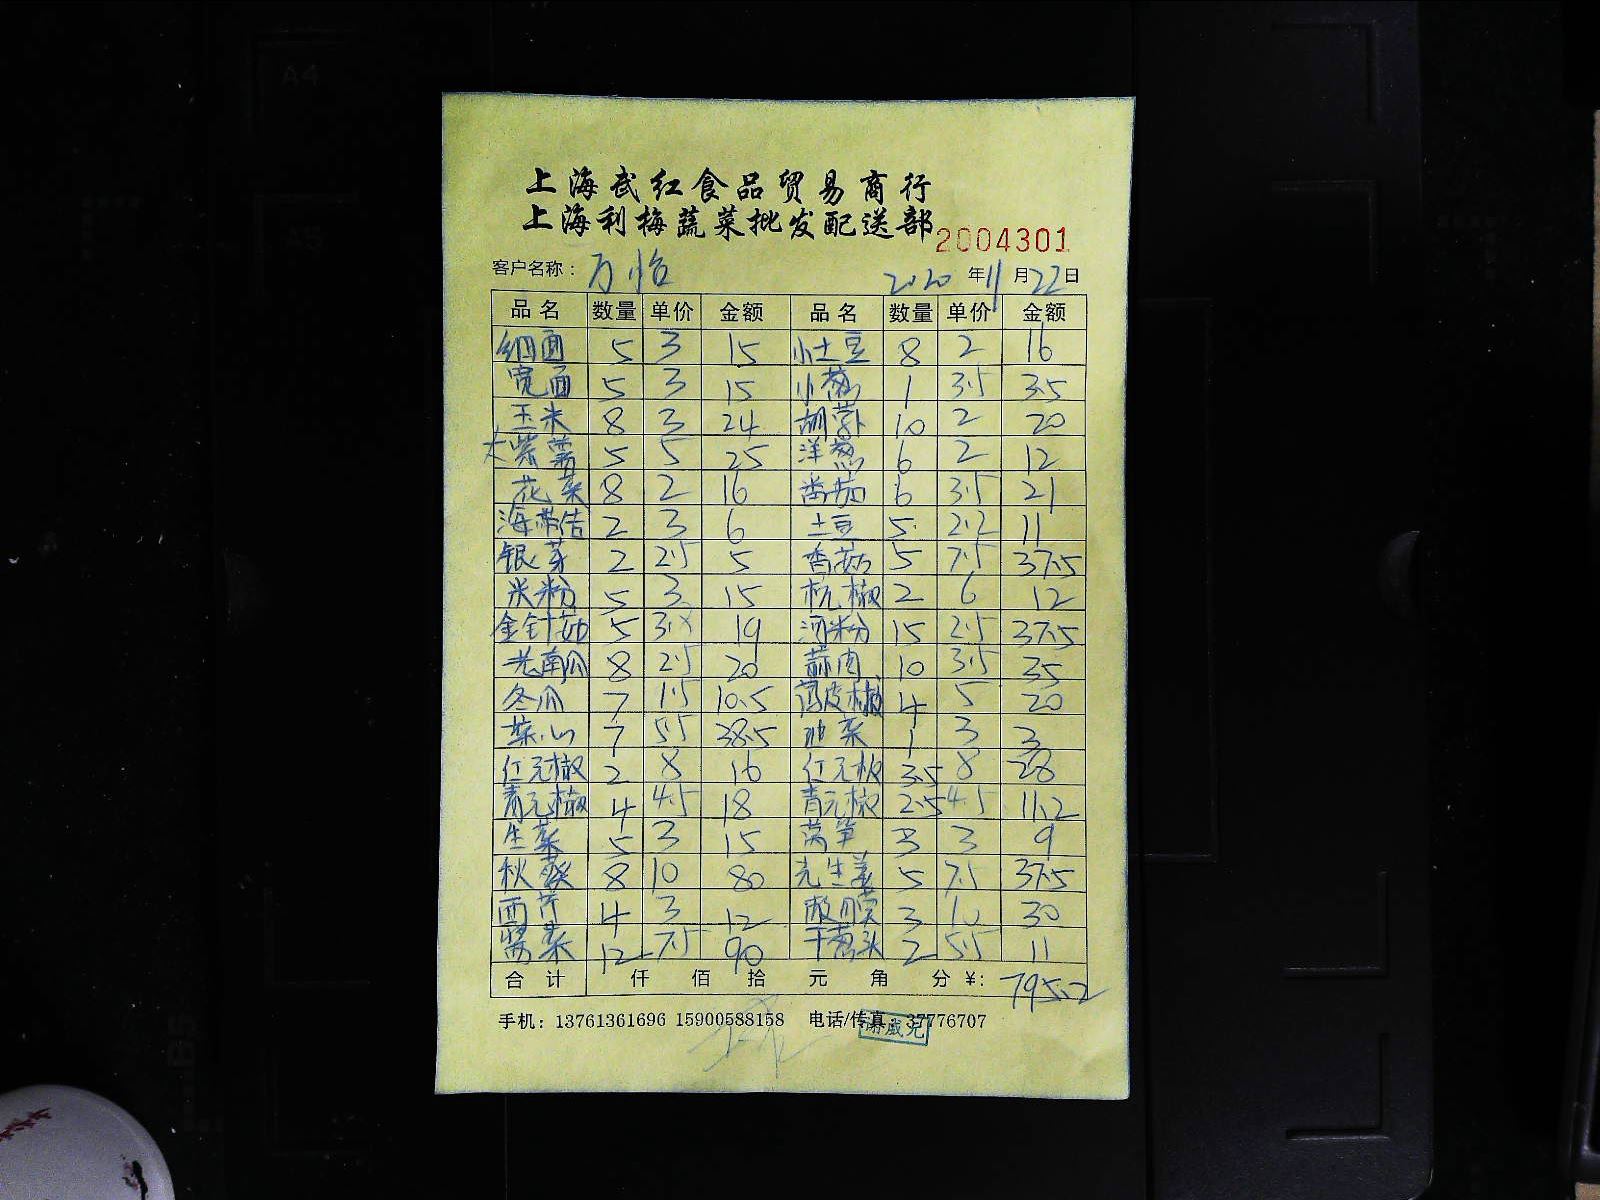 上海武红食品贸易商行
上海利梅蔬菜批发配送部
2004301
客户名称：万怡 2020年11月22日
品名 数量 单价 金额 品名 数量 单价 金额
细面 5 3 15 小土豆 8 2 16
宽面 5 3 15 小葱 1 3.5 3.5
玉米 8 3 24 胡萝卜 10 2 20
大紫薯 5 5 25 洋葱 6 2 12
花菜 8 2 16 番茄 6 3.5 21
海带结 2 3 6 土豆 5 2.2 11
银芽 2 2.5 5 香菇 5 7.5 37.5
米粉 5 3 15 杭椒 2 6 12
金针菇 5 19 河粉 15 2.5 37.5
老南瓜 8 2.5 20 蒜肉 10 3.5 35
冬瓜 7 1.5 10.5 薄皮椒 4 5 20
菜心 7 5.5 38.5 1 3 3
红元椒 2 8 16 红元椒 3.5 8 28
青元椒 4 4.5 18 青元椒 2.5 4.5 11.2
生菜 5 3 15 莴笋 3 3 9
秋葵 8 10 80 老生姜 5 7.5 37.5
西芹 4 3 12 3 10 30
12 7.5 90 干葱头 2 5.5 11
合计 仟 佰 拾 元 角 分 ¥: 795.2
手机：13761361696 15900588158 电话/传真：37776707